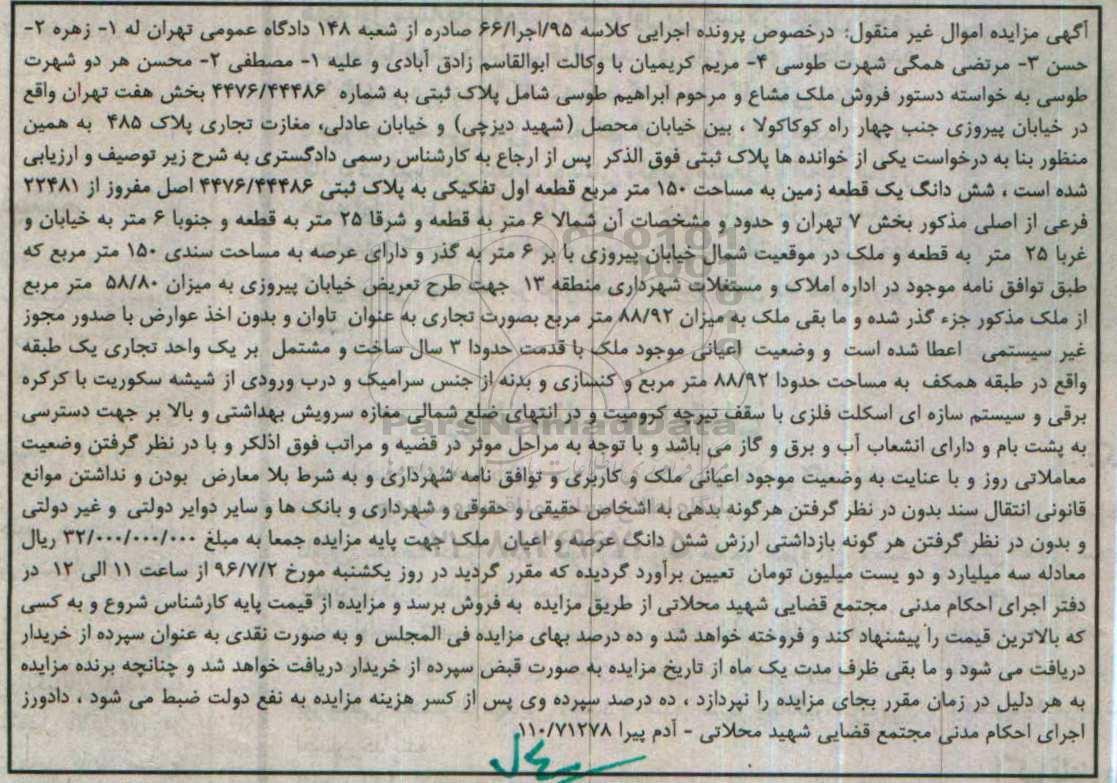 آگهی مزایده اموال غیر منقول: درخصوص پرونده اجرایی کلاسه ۹۵/اجرا/۶۶ صادره از شعبه ۱۴۸ دادگاه عمومی تهران له ۱- زهره ۲-
حسن ۳- مرتضی همگی شهرت طوسی ۴- مریم کریمیان با وکالت ابوالقاسم زادق آبادی و علیه ۱- مصطفی ۲- محسن هر دو شهرت
طوسی به خواسته دستور فروش ملک مشاع و مرحوم ابراهیم طوسی شامل پلاک ثبتی به شماره ۴۴۷۶/۴۴۴۸۶ بخش هفت تهران واقع
در خیابان پیروزی جنب چهار راه کوکاکولا ، بین خیابان محصل (شهید دیزچی) و خیابان عادلی، مغازت تجاری پلاک ۴۸۵ به همین
منظور بنا به درخواست یکی از خوانده ها پلاک ثبتی فوق الذکر پس از ارجاع به کارشناس رسمی دادگستری به شرح زیر توصیف و ارزیابی
شده است ، شش دانگ یک قطعه زمین به مساحت ۱۵۰ متر مربع قطعه اول تفکیکی به پلاک ثبتی ۴۴۷۶/۴۴۴۸۶ اصل مفروز از ۲۲۴۸۱
فرعی از اصلی مذکور بخش ۷ تهران و حدود و مشخصات آن شمالا ۶ متر به قطعه و شرقا ۲۵ متر به قطعه و جنوبا ۶ متر به خیابان و
غربا ۲۵ متر به قطعه و ملک در موقعیت شمال خیابان پیروزی با بر ۶ متر به گذر و دارای عرصه به مساحت سندی ۱۵۰ متر مربع که
طبق توافق نامه موجود در اداره املاک و مستغلات شهرداری منطقه ۱۳ جهت طرح تعریض خیابان پیروزی به میزان ۵۸/۸۰ متر مربع
از ملک مذکور جزء گذر شده و ما بقی ملک به میزان ۸۸/۹۲ متر مربع بصورت تجاری به عنوان تاوان و بدون اخذ عوارض با صدور مجوز
غیر سیستمی اعطا شده است و وضعیت اعیانی موجود ملک با قدمت حدودا ۳ سال ساخت و مشتمل بر یک واحد تجاری یک طبقه
واقع در طبقه همکف به مساحت حدودا ۸۸/۹۲ متر مربع و کنسازی و بدنه از جنس سرامیک و درب ورودی از شیشه سکوریت با کرکره
برقی و سیستم سازه ای اسکلت فلزی با سقف تیرچه کرومیت و در انتهای ضلع شمالی مغازه سرویش بهداشتی و بالا بر جهت دسترسی
به پشت بام و دارای انشعاب آب و برق و گاز می باشد و با توجه به مراحل موثر در قضیه و مراتب فوق اذلکر و با در نظر گرفتن وضعیت
معاملاتی روز و با عنایت به وضعیت موجود اعیانی ملک و کاربری و توافق نامه شهرداری و به شرط بلا معارض بودن و نداشتن موانع
قانونی انتقال سند بدون در نظر گرفتن هرگونه بدهی به اشخاص حقیقی و حقوقی و شهرداری و بانک ها و سایر دوایر دولتی و غیر دولتی
و بدون در نظر گرفتن هر گونه بازداشتی ارزش شش دانگ عرصه و اعیان ملک جهت پایه مزایده جمعا به مبلغ ۳۲/۰۰۰/۰۰۰/۰۰۰ ریال
معادله سه میلیارد و دو یست میلیون تومان تعیین برآورد گردیده که مقرر گردید در روز یکشنبه مورخ ۹۶/۷/۲ از ساعت ۱۱ الی ۱۲ در
دفتر اجرای احکام مدنی مجتمع قضایی شهید محلاتی از طریق مزایده به فروش برسد و مزایده از قیمت پایه کارشناس شروع و به کسی
که بالاترین قیمت را پیشنهاد کند و فروخته خواهد شد و ده درصد بهای مزایده فی المجلس و به صورت نقدی به عنوان سپرده از خریدار
دریافت می شود و ما بقی ظرف مدت یک ماه از تاریخ مزایده به صورت قبض سپرده از خریدار دریافت خواهد شد و چنانچه برنده مزایده
به هر دلیل در زمان مقرر بجای مزایده را نپردازد ، ده درصد سپرده وی پس از کسر هزینه مزایده به نفع دولت ضبط می شود ، دادورز
اجرای احکام مدنی مجتمع قضایی شهید محلاتی - آدم پیرا ۱۱۰/۷۱۲۷۸
ParsNamadData